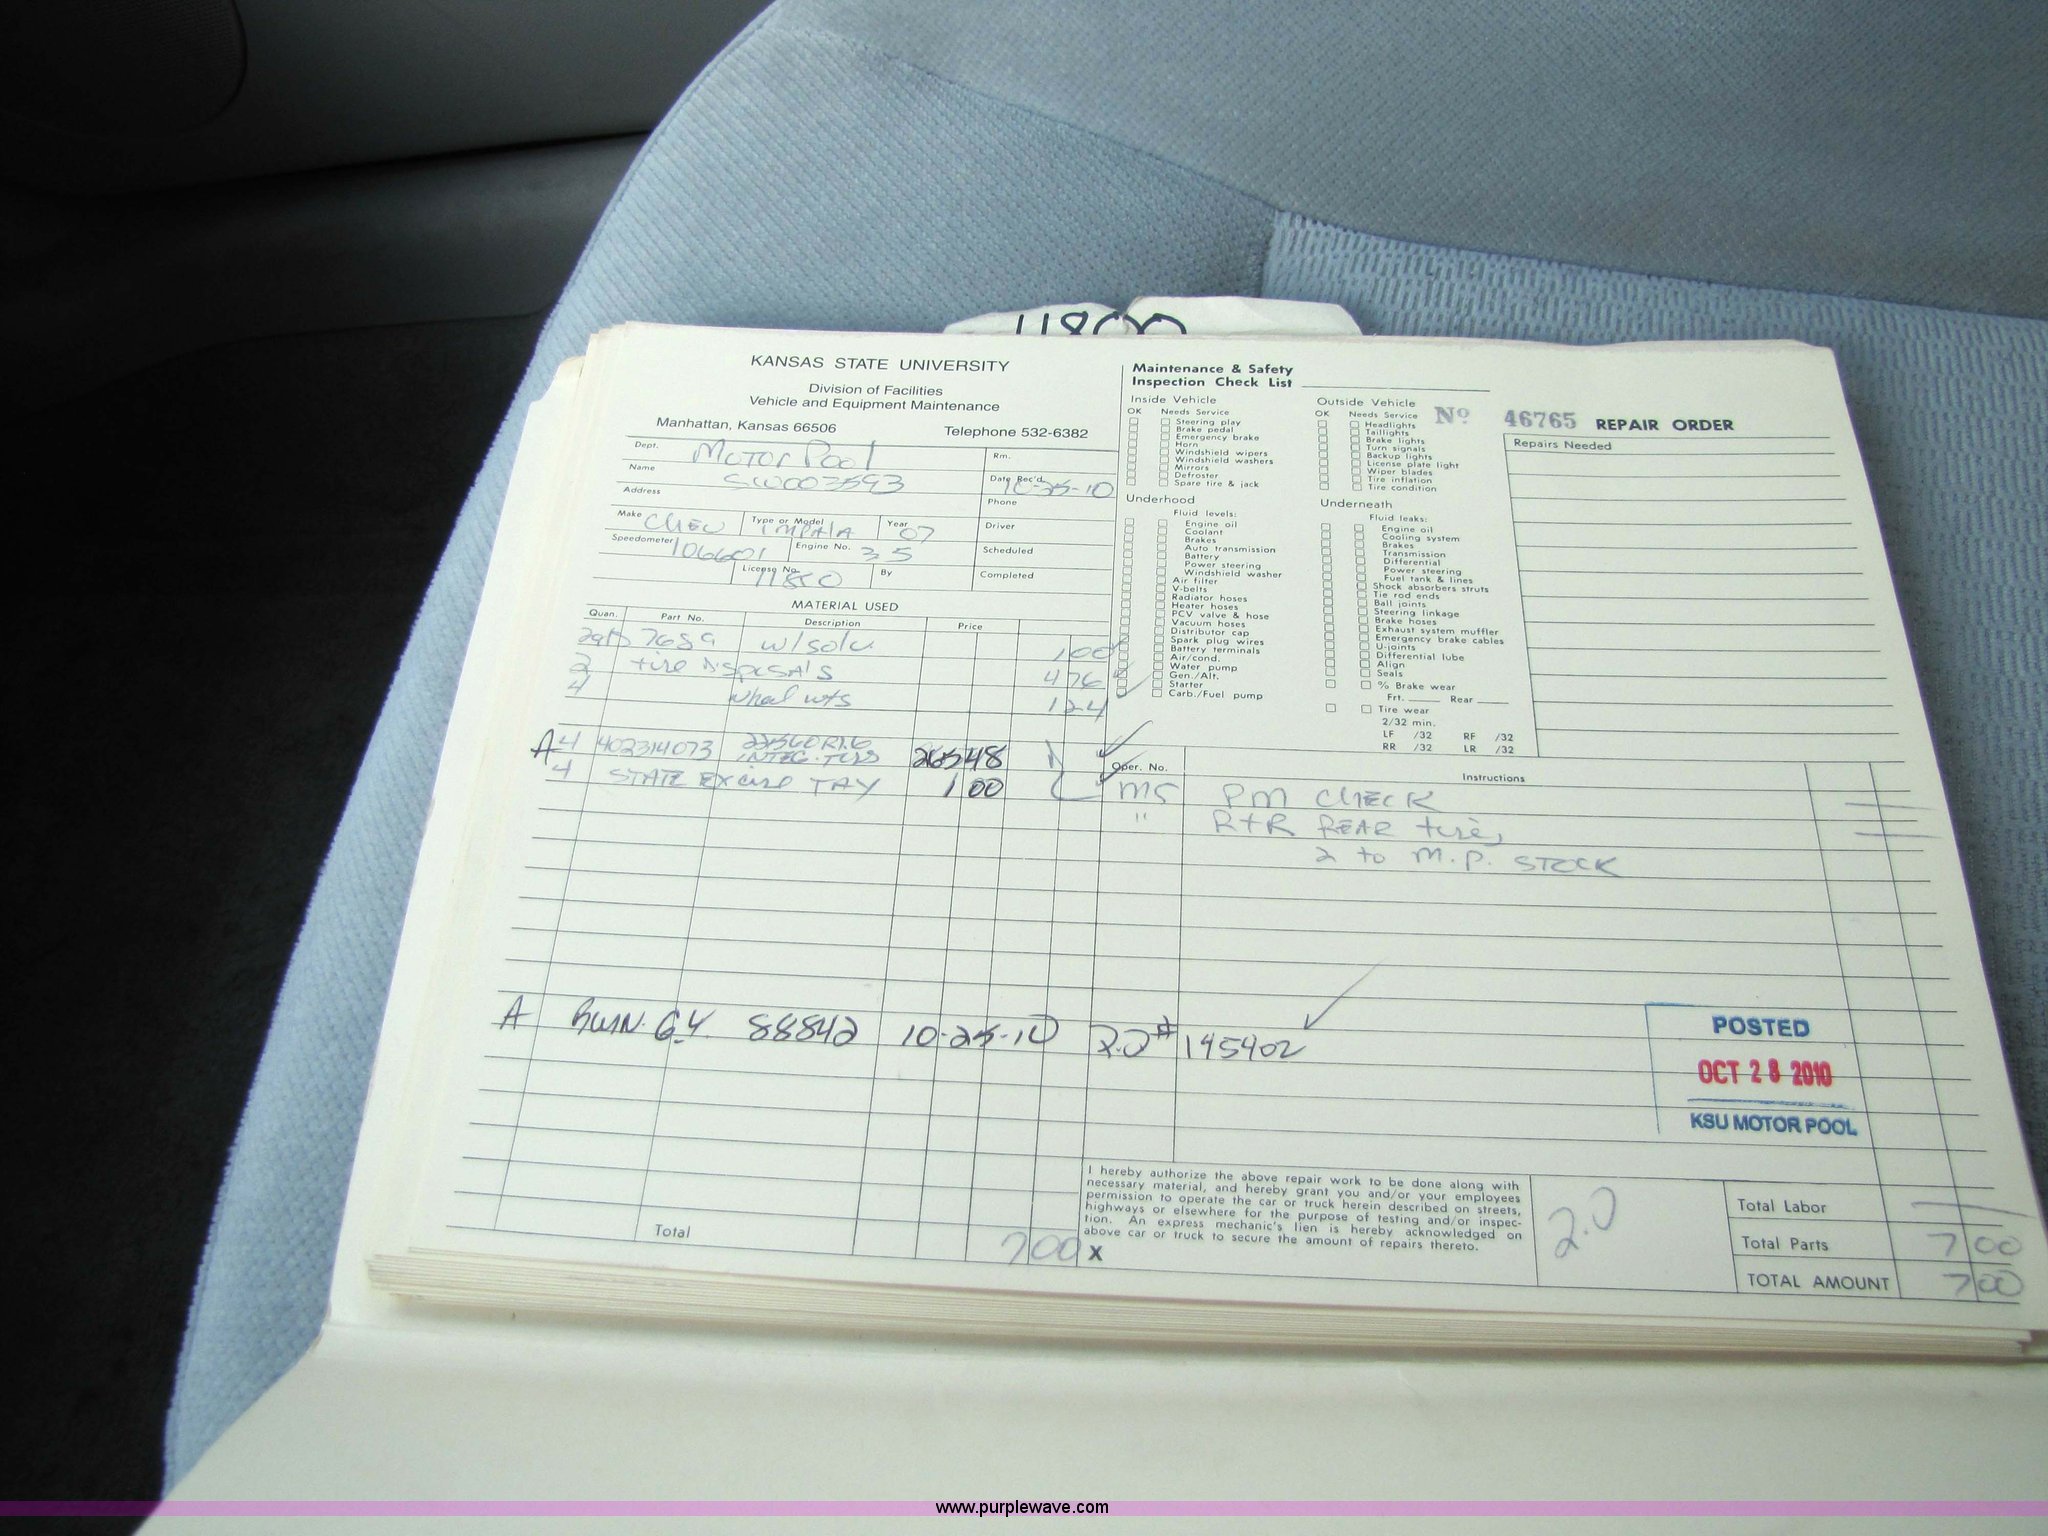 11800
KANSAS STATE UNIVERSITY
Division of Facilities
Vehicle and Equipment Maintenance
Manhattan, Kansas 66506 Telephone 532-6382
Dept. Motor Pool Rm.
Name SW003593 Date Rec'd 10-25-10
Address Phone
Make CHEV Type or Model IMPALA Year 07 Driver
Speedometer 106601 Engine No. 35 Scheduled
License No. 11800 By Completed
MATERIAL USED
Quan. Part No. Description Price
7689 w/solv 100
2 tire DISPOSALS 476
4 wheel wts 124
A 4 402314073 22560R16 26548
INTEG. TIRES
4 STATE EXCISE TAX 1 00
A 88842 10-25-10 P.O# 195902
Total 700
Maintenance & Safety
Inspection Check List
Inside Vehicle
OK Needs Service
Steering play
Brake pedal
Emergency brake
Horn
Windshield wipers
Windshield washers
Mirrors
Defroster
Spare tire & jack
Underhood
Fluid levels:
Engine oil
Coolant
Brakes
Auto transmission
Battery
Power steering
Windshield washer
Air filter
V-belts
Radiator hoses
Heater hoses
PCV valve & hose
Vacuum hoses
Distributor cap
Spark plug wires
Battery terminals
Air/cond.
Water pump
Gen./Alt.
Starter
Carb./Fuel pump
Outside Vehicle
OK Needs Service
Headlights
Taillights
Brake lights
Turn signals
Backup lights
License plate light
Wiper blades
Tire inflation
Tire condition
Underneath
Fluid leaks:
Engine oil
Cooling system
Brakes
Transmission
Differential
Power steering
Fuel tank & lines
Shock absorbers struts
Tie rod ends
Ball joints
Steering linkage
Brake hoses
Exhaust system muffler
Emergency brake cables
U-joints
Differential lube
Align
Seals
% Brake wear
Frt. Rear
Tire wear
2/32 min.
LF /32 RF /32
RR /32 LR /32
No 46765 REPAIR ORDER
Repairs Needed
Oper. No. Instructions
M5 PM CHECK
" R+R REAR tires
2 to M.P. STOCK
POSTED
OCT 28 2010
KSU MOTOR POOL
I hereby authorize the above repair work to be done along with
necessary material, and hereby grant you and/or your employees
permission to operate the car or truck herein described on streets,
highways or elsewhere for the purpose of testing and/or inspec-
tion. An express mechanic's lien is hereby acknowledged on
above car or truck to secure the amount of repairs thereto.
X
2.0
Total Labor
Total Parts 7 00
TOTAL AMOUNT 7 00
www.purplewave.com